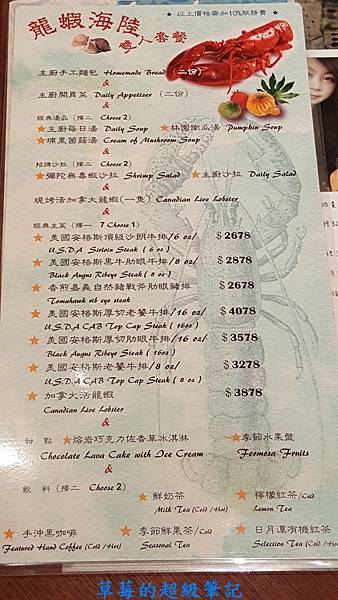 龍蝦海陸
雙人套餐
★以上價格需加10%服務費★
主廚手工麵包 Homemade Bread （二份）
&
主廚開胃菜 Daily Appetizer （二份）
&
經典湯品（擇二 Choose 2）
★主廚每日湯 Daily Soup ★林園南瓜湯 Pumpkin Soup
★埔里菌菇湯 Cream of Mushroom Soup
&
招牌沙拉（擇二 Choose 2）
★彌陀無毒蝦沙拉 Shrimp Salad ★主廚沙拉 Daily Salad
&
現烤活加拿大龍蝦(一隻) Canadian Live Lobster
&
經典主菜（擇一 7 Choose 1）
★美國安格斯頂級沙朗牛排/6 oz/ $2678
U.S.D.A Sirloin Steak ( 6 oz )
★美國安格斯黑牛肋眼牛排/8 oz/ $2878
Black Angus Ribeye Steak ( 8 oz )
★香煎嘉義自然豬戰斧肋眼豬排 $2678
Tomahawk rib eye steak
★美國安格斯厚切老饕牛排/16 oz/ $4078
U.S.D.A CAB Top Cap Steak ( 16oz )
★美國安格斯厚切肋眼牛排/16 oz/ $3578
Black Angus Ribeye Steak ( 16oz )
★美國安格斯老饕牛排/8 oz/ $3278
U.S.D.A CAB Top Cap Steak ( 8 oz )
★加拿大活龍蝦 $3878
Canadian Live Lobster
&
甜 點 ★熔岩巧克力佐香草冰淇淋 ★季節水果盤
Chocolate Lava Cake with Ice Cream Formosa Fruits
&
飲 料（擇二 Choose 2）
★鮮奶茶 ★檸檬紅茶/Cold
Milk Tea (Cold /Hot) Lemon Tea
★手沖黑咖啡 ★季節鮮果茶/Cold ★日月潭有機紅茶
Featured Hand Coffee (Cold /Hot) Seasonal Tea Selection Tea (Cold /Hot)
草莓的超級筆記